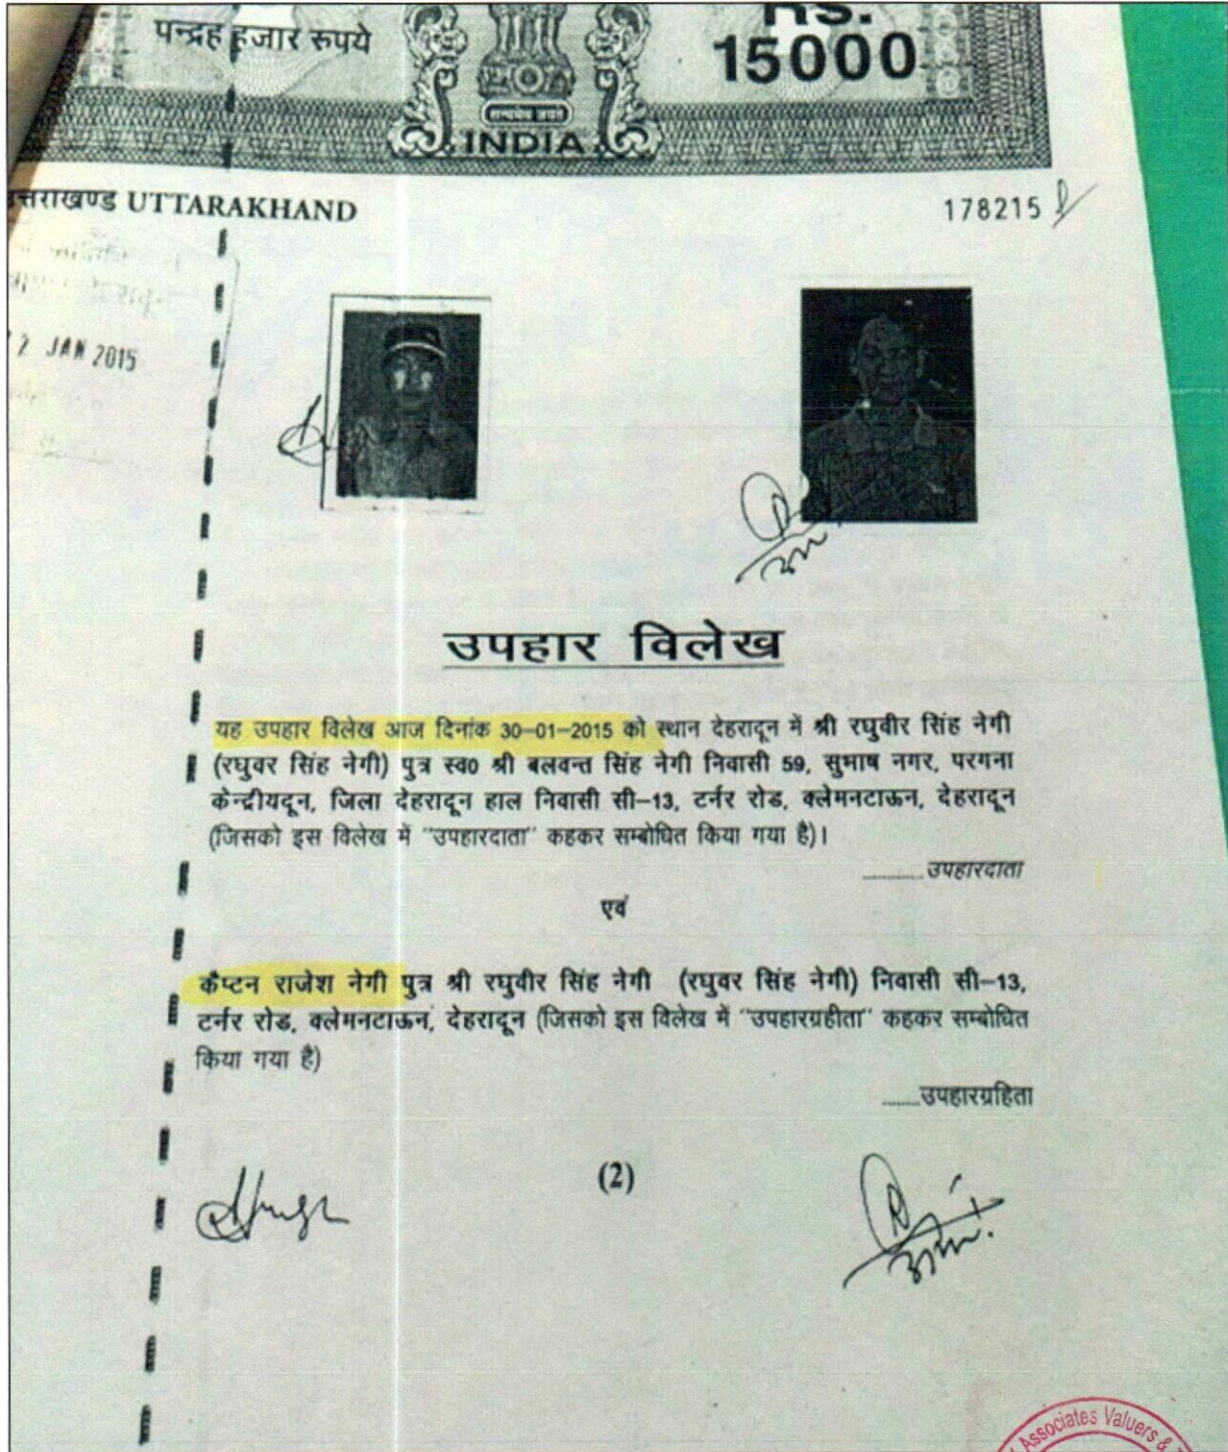 पन्द्रह हजार रुपये
RS.
15000
सत्यमेव जयते
INDIA
उत्तराखण्ड UTTARAKHAND
178215
2 JAN 2015
उपहार विलेख
यह उपहार विलेख आज दिनांक 30-01-2015 को स्थान देहरादून में श्री रघुवीर सिंह नेगी
(रघुवर सिंह नेगी) पुत्र स्व0 श्री बलवन्त सिंह नेगी निवासी 59, सुभाष नगर, परगना
केन्द्रीयदून, जिला देहरादून हाल निवासी सी-13, टर्नर रोड, क्लेमनटाऊन, देहरादून
(जिसको इस विलेख में "उपहारदाता" कहकर सम्बोधित किया गया है)।
.............उपहारदाता
एवं
कैप्टन राजेश नेगी पुत्र श्री रघुवीर सिंह नेगी (रघुवर सिंह नेगी) निवासी सी-13,
टर्नर रोड, क्लेमनटाऊन, देहरादून (जिसको इस विलेख में "उपहारग्रहीता" कहकर सम्बोधित
किया गया है)
........उपहारग्रहिता
(2)
Associates Valuers &